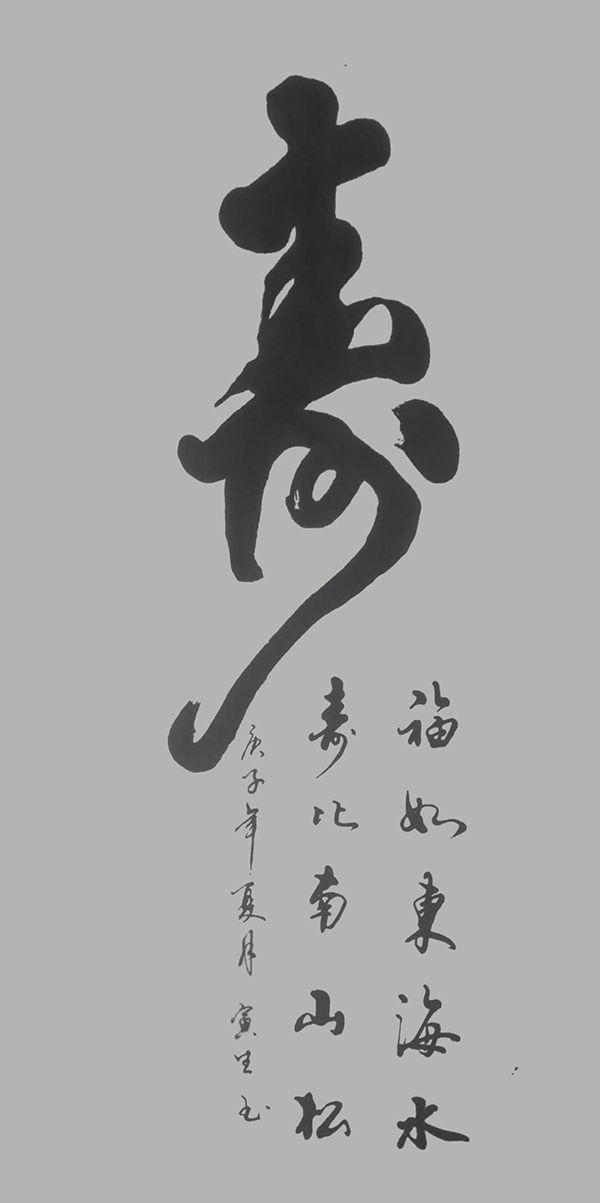 寿
福如東海水
寿比南山松
庚子年夏月 寅生书